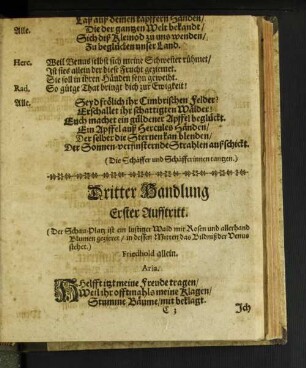 Laß auß deinen tapffern Händen/
Alle. Die der gantzen Welt bekandt/
Sich diß Kleinod zu uns wenden/
Zu beglücken unser Land.
Herc. Weil Venus selbst sich meine Schwester rühmet/
Ist sies allein der diese Frucht geziemet.
Sie soll in deren Händen seyn geweyht.
Rad. So gütge That bringt dich zur Ewigkeit!
Alle. Seyd frölich ihr Cimbrischen Felder!
Erschallet ihr schattigten Wälder!
Euch machet ein güldener Apffel beglückt.
Ein Apffel auß Hercules Händen/
Der selber die Sternen kan blenden/
Der Sonnen-verfinsternde Strahlen außschickt.
(Die Schäffer und Schäfferinnen tantzen.)
Dritter Handlung
Erster Aufftritt.
(Der Schau-Platz ist ein lustiger Wald mit Rosen und allerhand
Blumen gezieret / in dessen Mitten das Bildnüß der Venus
stehet.)
Friedhold allein.
Aria.
Helfft itzt meine Freude tragen/
Weil ihr offtmahls meine Klagen/
Stumme Bäume/ mit beklagt.
C 3 Ich